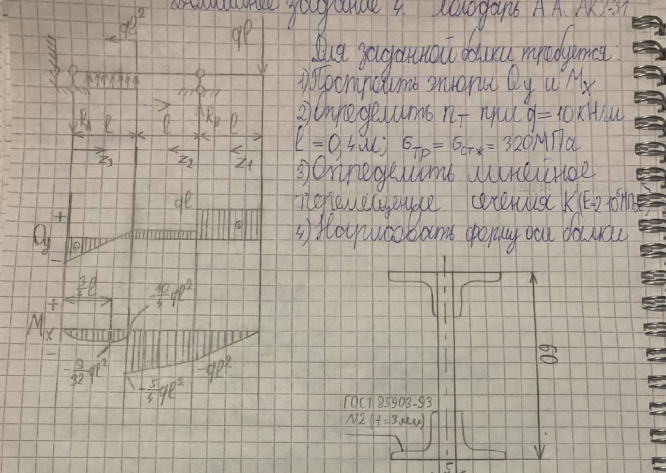 Домашнее задание 4. Володарь А.А. АК3-31
ql²
ql
Для заданной балки требуется:
1) Построить эпюры Qy и Mx
2) Определить nт при q=10 кН/м
l = 0,4 м; σтр = σстж = 320 МПа
3) Определить линейное
перемещение сечения K (E=2·10⁵ МПа)
4) Нарисовать форму оси балки
RA l l RB l
z3 z2 z1
ql
+
Qy
-
3/4 l
10/4 ql²
+
Mx
-
-9/32 ql²
-5/4 ql²
-ql²
60
ГОСТ 85903-93
N2 (t=3мм)
5